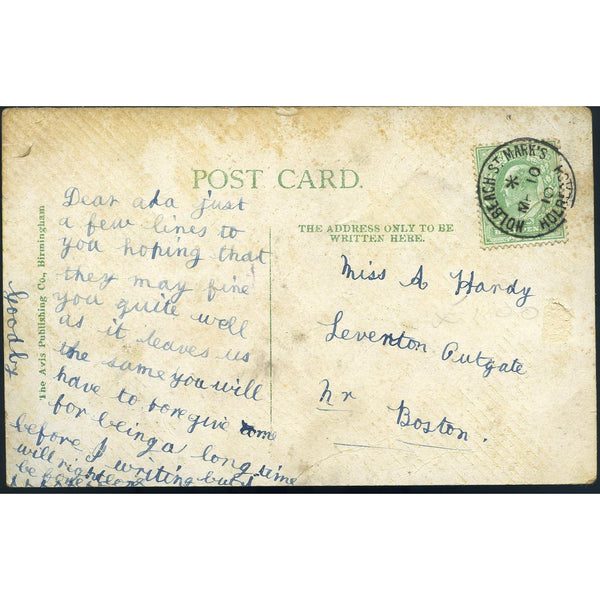 POST CARD.
THE ADDRESS ONLY TO BE
WRITTEN HERE.
The Avis Publishing Co., Birmingham
HOLBEACH-ST. MARK'S
HOLBEACH
10
10
Dear ada just
a few lines to
you hoping that
they may fine
you quite well
as it leaves us
the same you will
have to foregive me
for being a long time
before I writing but I
will right
Goodby
Miss A Hardy
Leverton Outgate
Nr Boston.